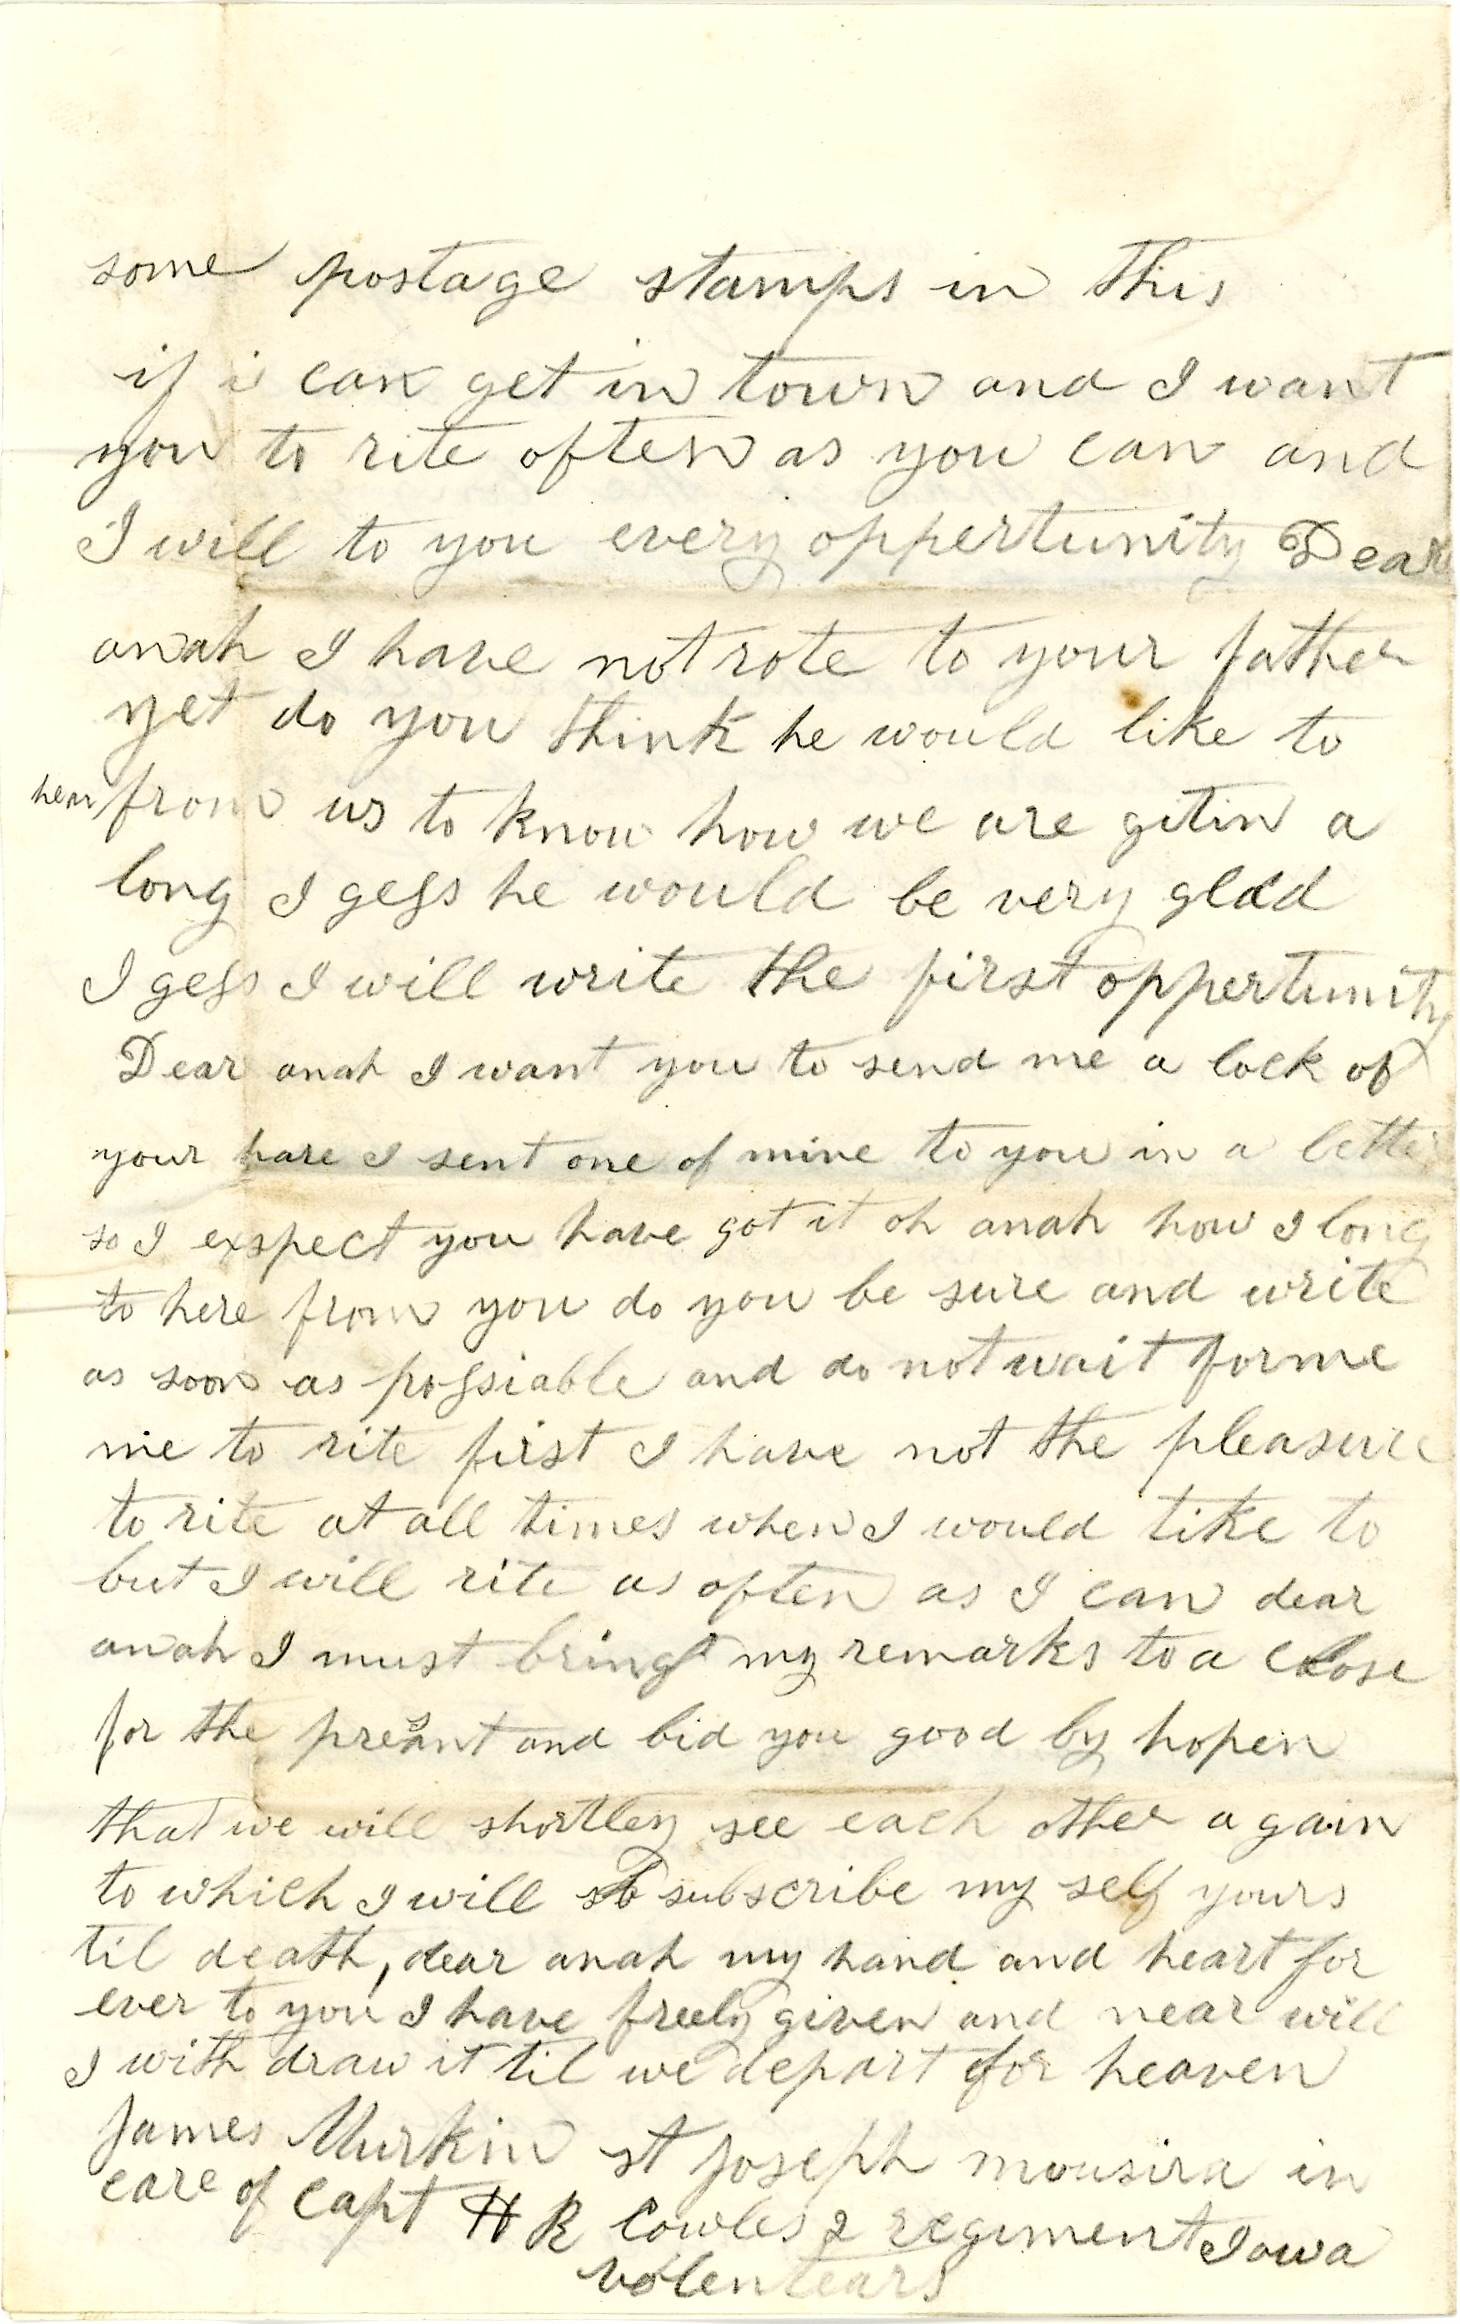 some postage stamps in this
if i can get in town and I want
you to rite often as you can and
I will to you every oppertunity Dear
anah I have not rote to your father
yet do you think he would like to
hear from us to know how we are gitin a
long I gess he would be very glad
I gess I will write the first oppertunity
Dear anah I want you to send me a lock of
your hare I sent one of mine to you in a letter
so I expect you have got it oh anah how I long
to here from you do you be sure and write
as soon as possiable and do not wait for me
me to rite first I have not the pleasure
to rite at all times when I would like to
but I will rite as often as I can dear
anah I must bring my remarks to a close
for the present and bid you good by hopen
that we will shortley see each other a gain
to which I will subscribe my self yours
til death, dear anah my hand and heart for
ever to you I have freely given and near will
I with draw it til we depart for heaven
James Murkin st Joseph mousira in
care of Capt H R Cowles 2 regiment Iowa
volentears